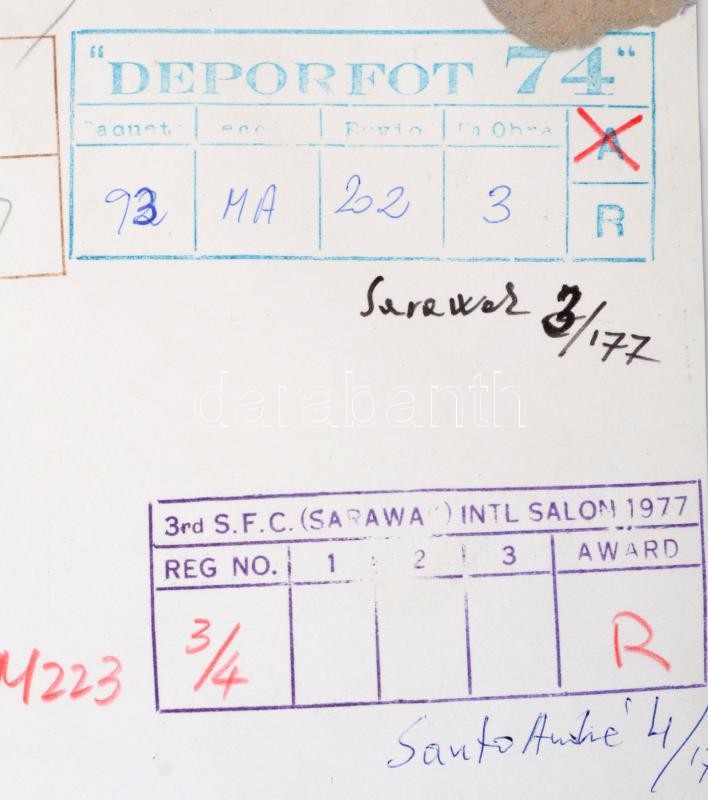 "DEPORFOT 74"
A
93 MA 202 3 R
Sarawak 3/177
darabanth
3rd S.F.C. (SARAWA ) INTL SALON 1977
REG NO. 1 2 3 AWARD
3/4 R
M223
Santo André 4/17